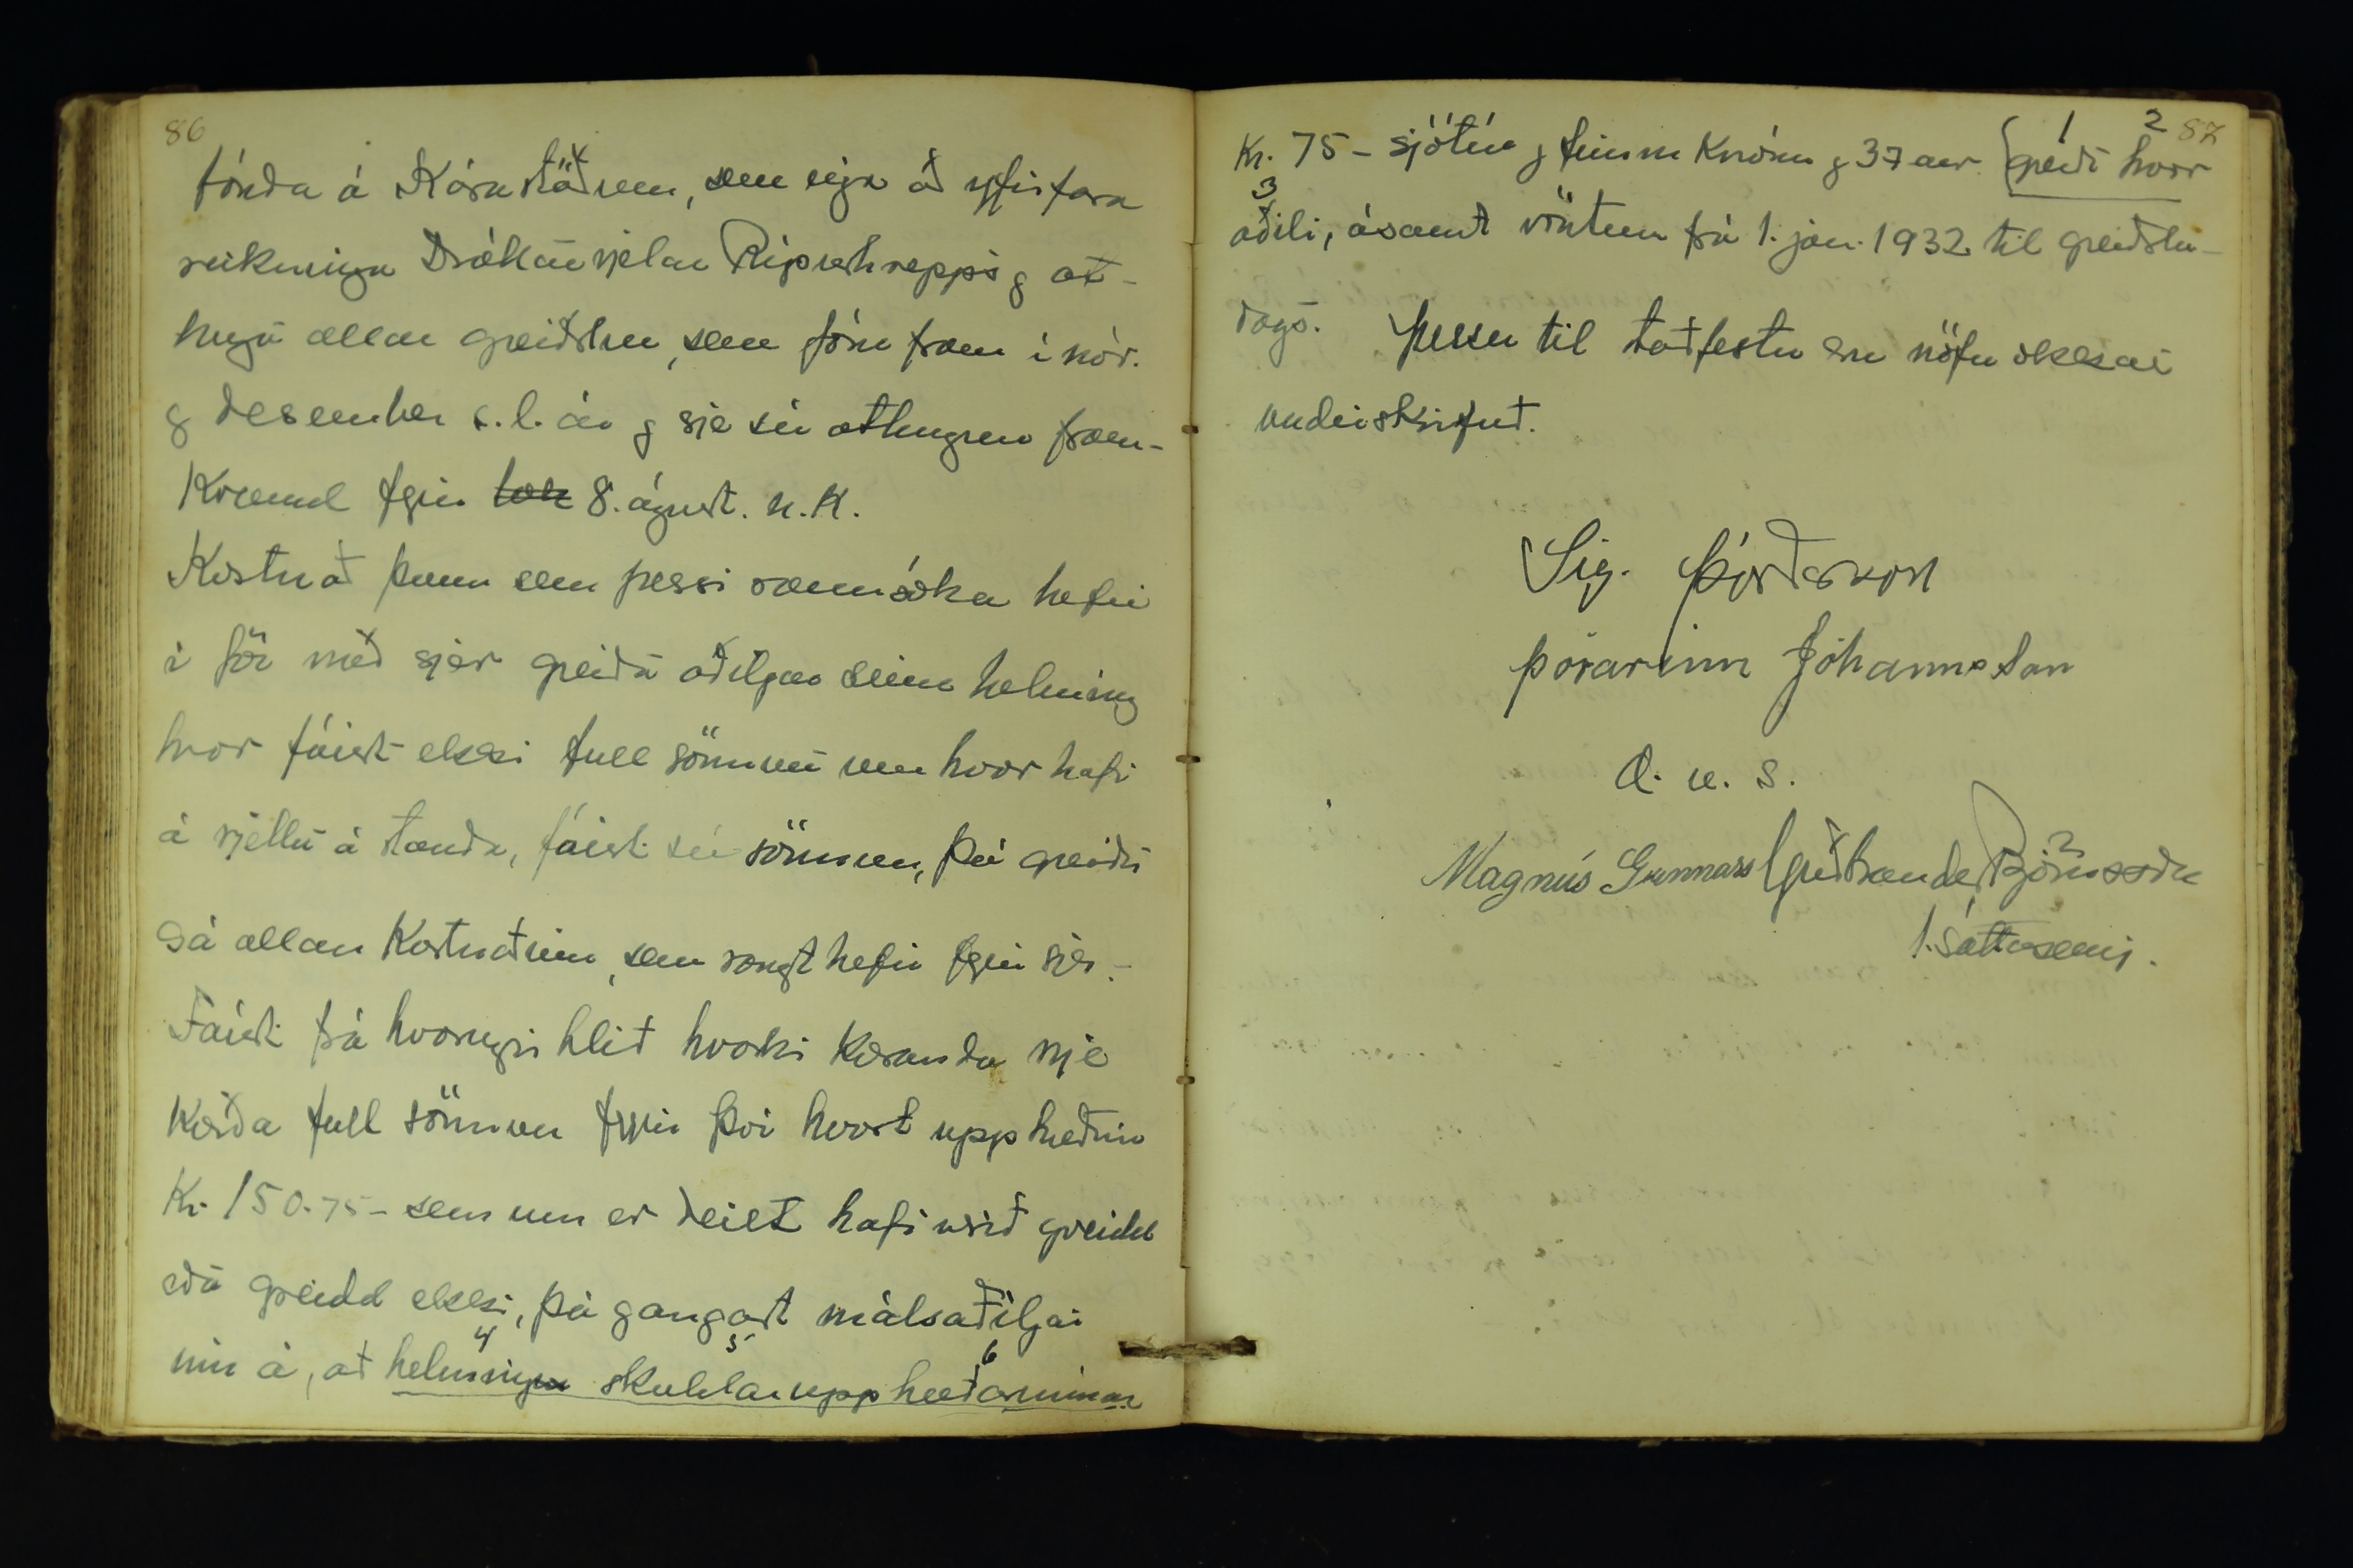 86
bónda á Kárastöðum, sem eiga að yfirfara
reikninga Dráttarvjelar Rípurhrepps og at-
huga allar greiðslur, sem fóru fram í nóv.
og desember s.l. ár og sje sú athugun fram-
kvæmd fyrir 8. ágúst. n.k.
Kostnað þann sem þessi rannsókn hefir
í för með sjer greiða aðiljar sinn helming
hvor fáist ekki full sönnun um hvor hafi
á rjettu á standa, fáist sú sönnun, þá greiði
sá allan kostnaðinn, sem rangt hefir fyrir sjer.-
Fáist frá hvorugri hlið hvorki kæranda nje
kærða full sönnun fyrir því hvort upphæðin
Kr. 150.75- sem um er deilt hafi verið greidd
eða greidd ekki, þá gangast málsaðiljar
inn á, að helming skuldarupphæðarinnar
4 5 6
1 2 87
Kr. 75 - sjötíu og fimm krónur og 37 aur. greiði hvor
3
aðili, ásamt vöxtum frá 1. jan. 1932 til greiðslu-
dags. Þessu til staðfestu eru nöfn okkar
undirskrifuð.
Sig. Þórðarson
Þórarinn Jóhannsson
a. u. s.
Magnús Gunnarss Guðbrandur Björnsson
1. sáttasemj.